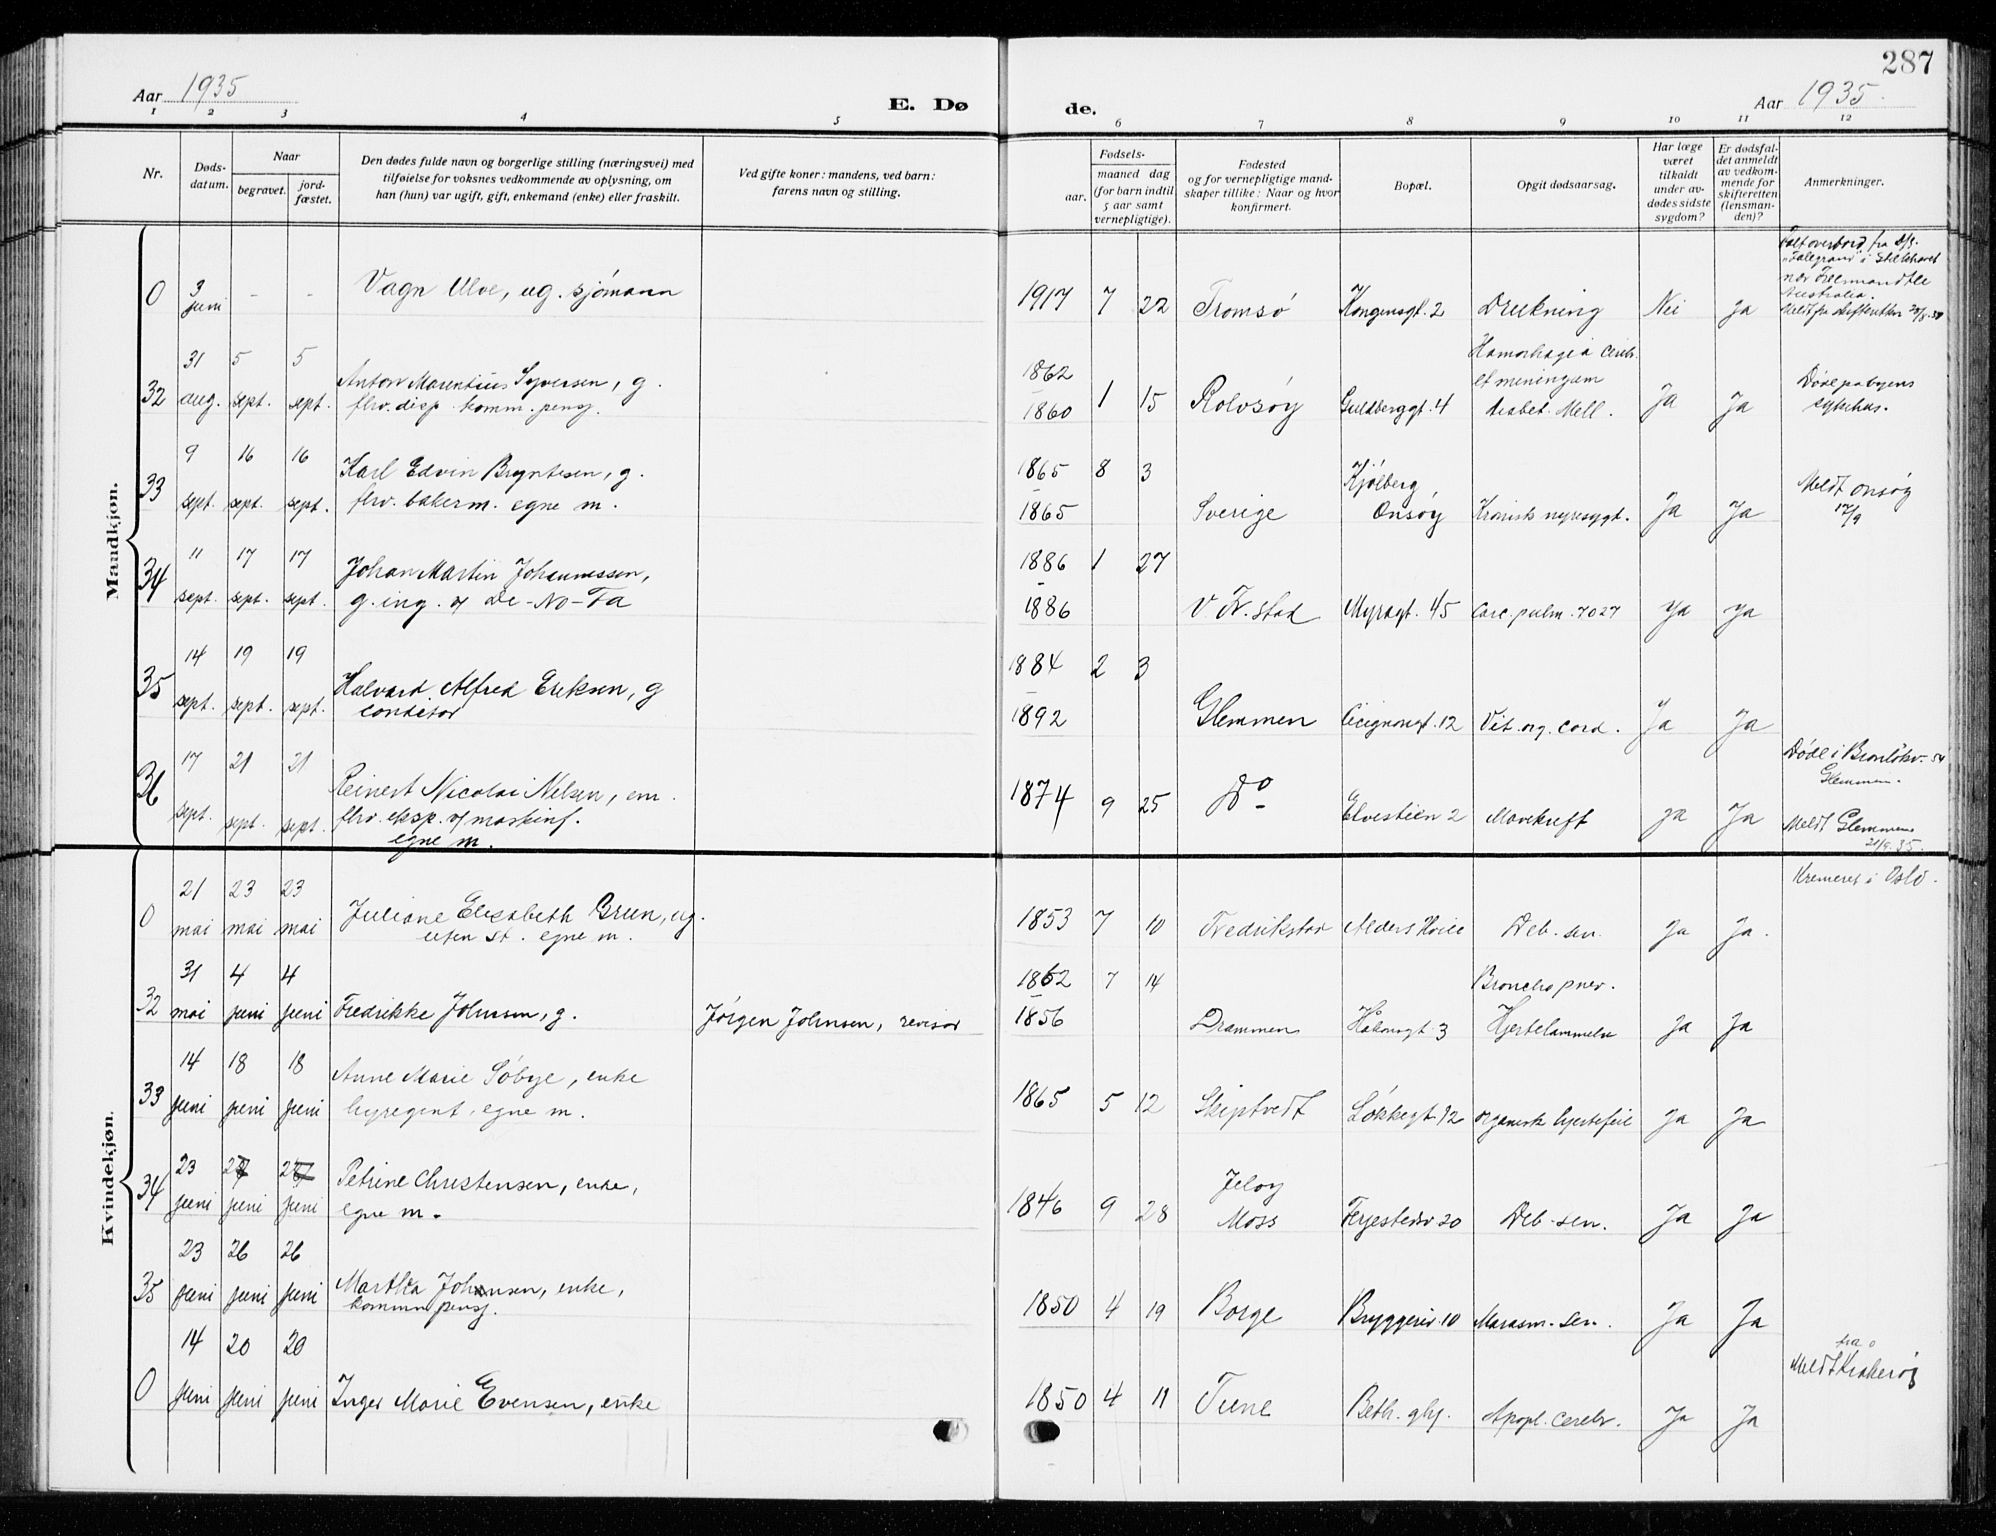 287
Aar 1935
E. Dø
de.
Aar 1935.
1 2 3 4 5 6 7 8 9 10 11 12
Nr.
Døds-
datum.
Naar
begravet.
jord-
fæstet.
Den dødes fulde navn og borgerlige stilling (næringsvei) med
tilføielse for voksnes vedkommende av oplysning, om
han (hun) var ugift, gift, enkemand (enke) eller fraskilt.
Ved gifte koner: mandens, ved barn:
farens navn og stilling.
Fødsels-
aar.
maaned dag
(for barn indtil
5 aar samt
vernepligtige).
Fødested
og for vernepligtige mand-
skaper tillike: Naar og hvor
konfirmert.
Bopæl.
Opgit dødsaarsag.
Har læge
været
tilkaldt
under av-
dødes sidste
sygdom?
Er dødsfal-
det anmeldt
av vedkom-
mende for
skifteretten
(lensman-
den)?
Anmerkninger.
Maadkjøn.
0 3 juni - - Vagn Ulve, ug. sjömann 1917 7 22 Tromsö Kongensgt. 2 Drukning Nei Ja
Falt overbord fra D/S
i Stillehavet
nær
Australia.
Meldt fra skifteretten
32 31 aug. 5 sept. 5 sept. Anton Marentius Syversen, g.
fhv. disp. komm. pensj.
1862 - 1860 1 15 Rolvsöy Guldberggt. 4
et meningum
diabet. Mell. Ja Ja
Döde på byens
sykehus.
33 9 sept. 16 sept. 16 sept. Karl Edvin Bryntesen, g.
fhv. bakerm. egne m.
1865 - 1865 8 3 Sverige Kjölberg
Onsöy Kronisk nyresygd. Ja Ja
Meldt Onsöy
17/9
34 11 sept. 17 sept. 17 sept. Johan Martin Johannessen,
g. ing. v/ De-No-Fa
1886 - 1886 1 27 V. Fr.stad Myragt. 45 Carc. pulm. 7027 Ja Ja
35 14 sept. 19 sept. 19 sept. Halvard Alfred Eriksen, g
conditor
1884 - 1892 2 3 Glemmen Cicignongt. 12 Vit. org. cord. Ja Ja
36 17 sept. 21 sept. 21 sept. Reinert Nicolai Nelsen, em.
fhv. eksp. v/ maskinf.
egne m.
1874 9 25 Do Elvestien 2 Mavekreft Ja Ja
Döde i
Glemmen.
Meldt Glemmen
21/9.35.
Kvindekjøn.
0 21 mai 23 mai 23 mai Juliane Elisabeth Bruun, ug.
uten st. egne m.
1853 7 10 Fredrikstad Alders Hvile Deb. sen. Ja Ja.
Kremeret i Oslo.
32 31 mai 4 juni 4 juni Fredrikke Johnsen, g. Jörgen Johnsen, revisor
1862 - 1856 7 14 Drammen Håkonsgt. 3 Bronchopnev.
Hjertelammelse Ja Ja
33 14 juni 18 juni 18 juni Anne Marie Söbye, enke
byregent. egne m.
1865 5 12 Skiptvedt Lökkegt. 12 Organisk hjertefeil Ja Ja
34 23 juni juni juni Petrine Christensen, enke,
egne m.
1846 9 28 Jelöy
Moss Ferjestedsv 20 Deb. sen. Ja Ja
35 23 juni 26 juni 26 juni Martha Johansen, enke,
komm. pensj.
1850 4 19 Borge Bryggeriv. 10 Marasm. sen. Ja Ja
0 14 juni 20 juni 20 juni Inger Marie Evensen, enke
1850 4 11 Tune Beth. ghj. Apopl. cerebr. Ja Ja
fra
Meldt Kråkeröy